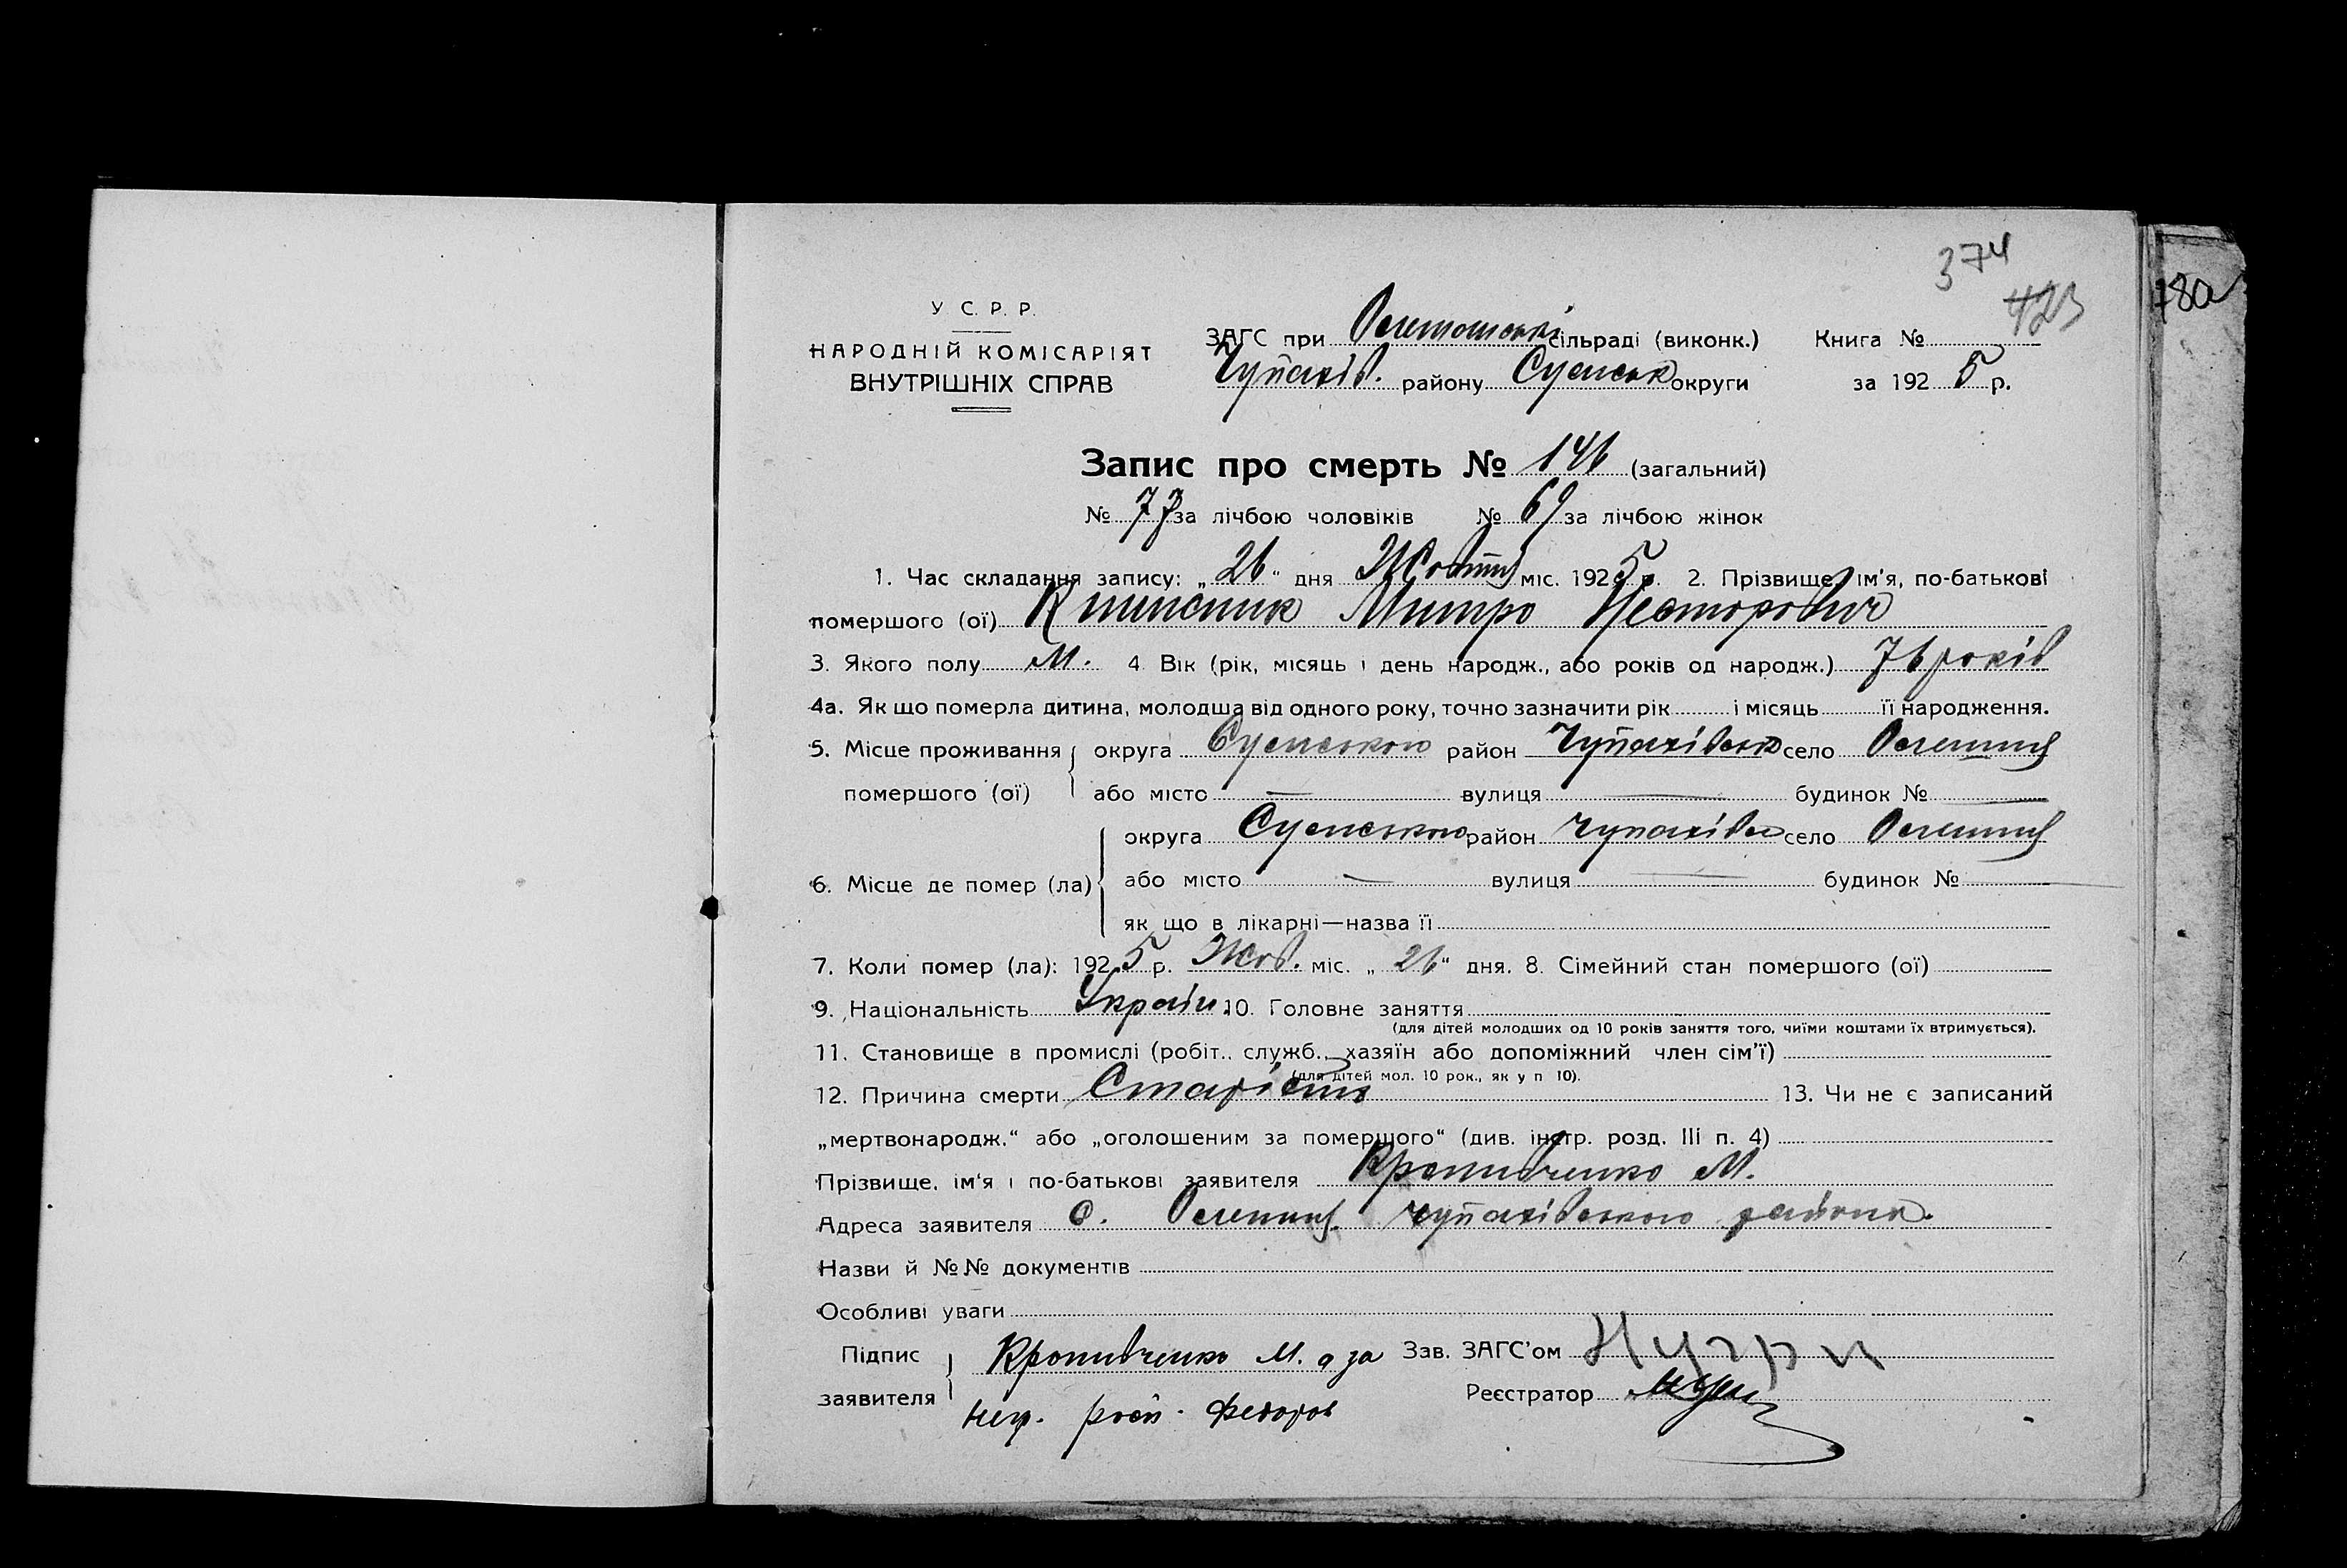 374
423
780
У С. Р. Р.
НАРОДНІЙ КОМІСАРІЯТ
ВНУТРІШНІХ СПРАВ
ЗАГС при сільраді (виконк.) Книга №
Чупахів. району Сумськ округи за 1925 р.
Запис про смерть № 146 (загальний)
№ 77 за лічбою чоловіків № 69 за лічбою жінок
1. Час складання запису: „26“ дня Жовтня міс. 1925 р. 2. Прізвище, ім'я, по-батькові
помершого (ої) Митро Несторович
3. Якого полу М. 4 Вік (рік, місяць і день народж., або років од народж.) 76 років
4а. Як що померла дитина, молодша від одного року, точно зазначити рік і місяць її народження.
5. Місце проживання округа Сумською район Чупахівськ село Олешня
помершого (ої) або місто — вулиця — будинок № —
округа Сумською район Чупахівск село Олешня
6. Місце де помер (ла) або місто — вулиця — будинок № —
як що в лікарні—назва її
7. Коли помер (ла): 1925 р. Жов. міс. „26“ дня. 8. Сімейний стан помершого (ої)
9. Національність Україн. 10. Головне заняття
(для дітей молодших од 10 років заняття того, чиїми коштами їх втримується).
11. Становище в промислі (робіт.. служб., хазяїн або допоміжний член сім'ї)
(для дітей мол. 10 рок., як у п 10).
12. Причина смерти Старість 13. Чи не є записаний
„мертвонародж.“ або „оголошеним за помершого“ (див. інстр. розд. III п. 4)
Прізвище, ім'я і по-батькові заявителя Кропивченко М.
Адреса заявителя с. Олешня Чупахівською района.
Назви й №№ документів
Особливі уваги
Підпис Кропивченко М. а за Зав. ЗАГС'ом
заявителя Реєстратор
нег. росп. Федоров